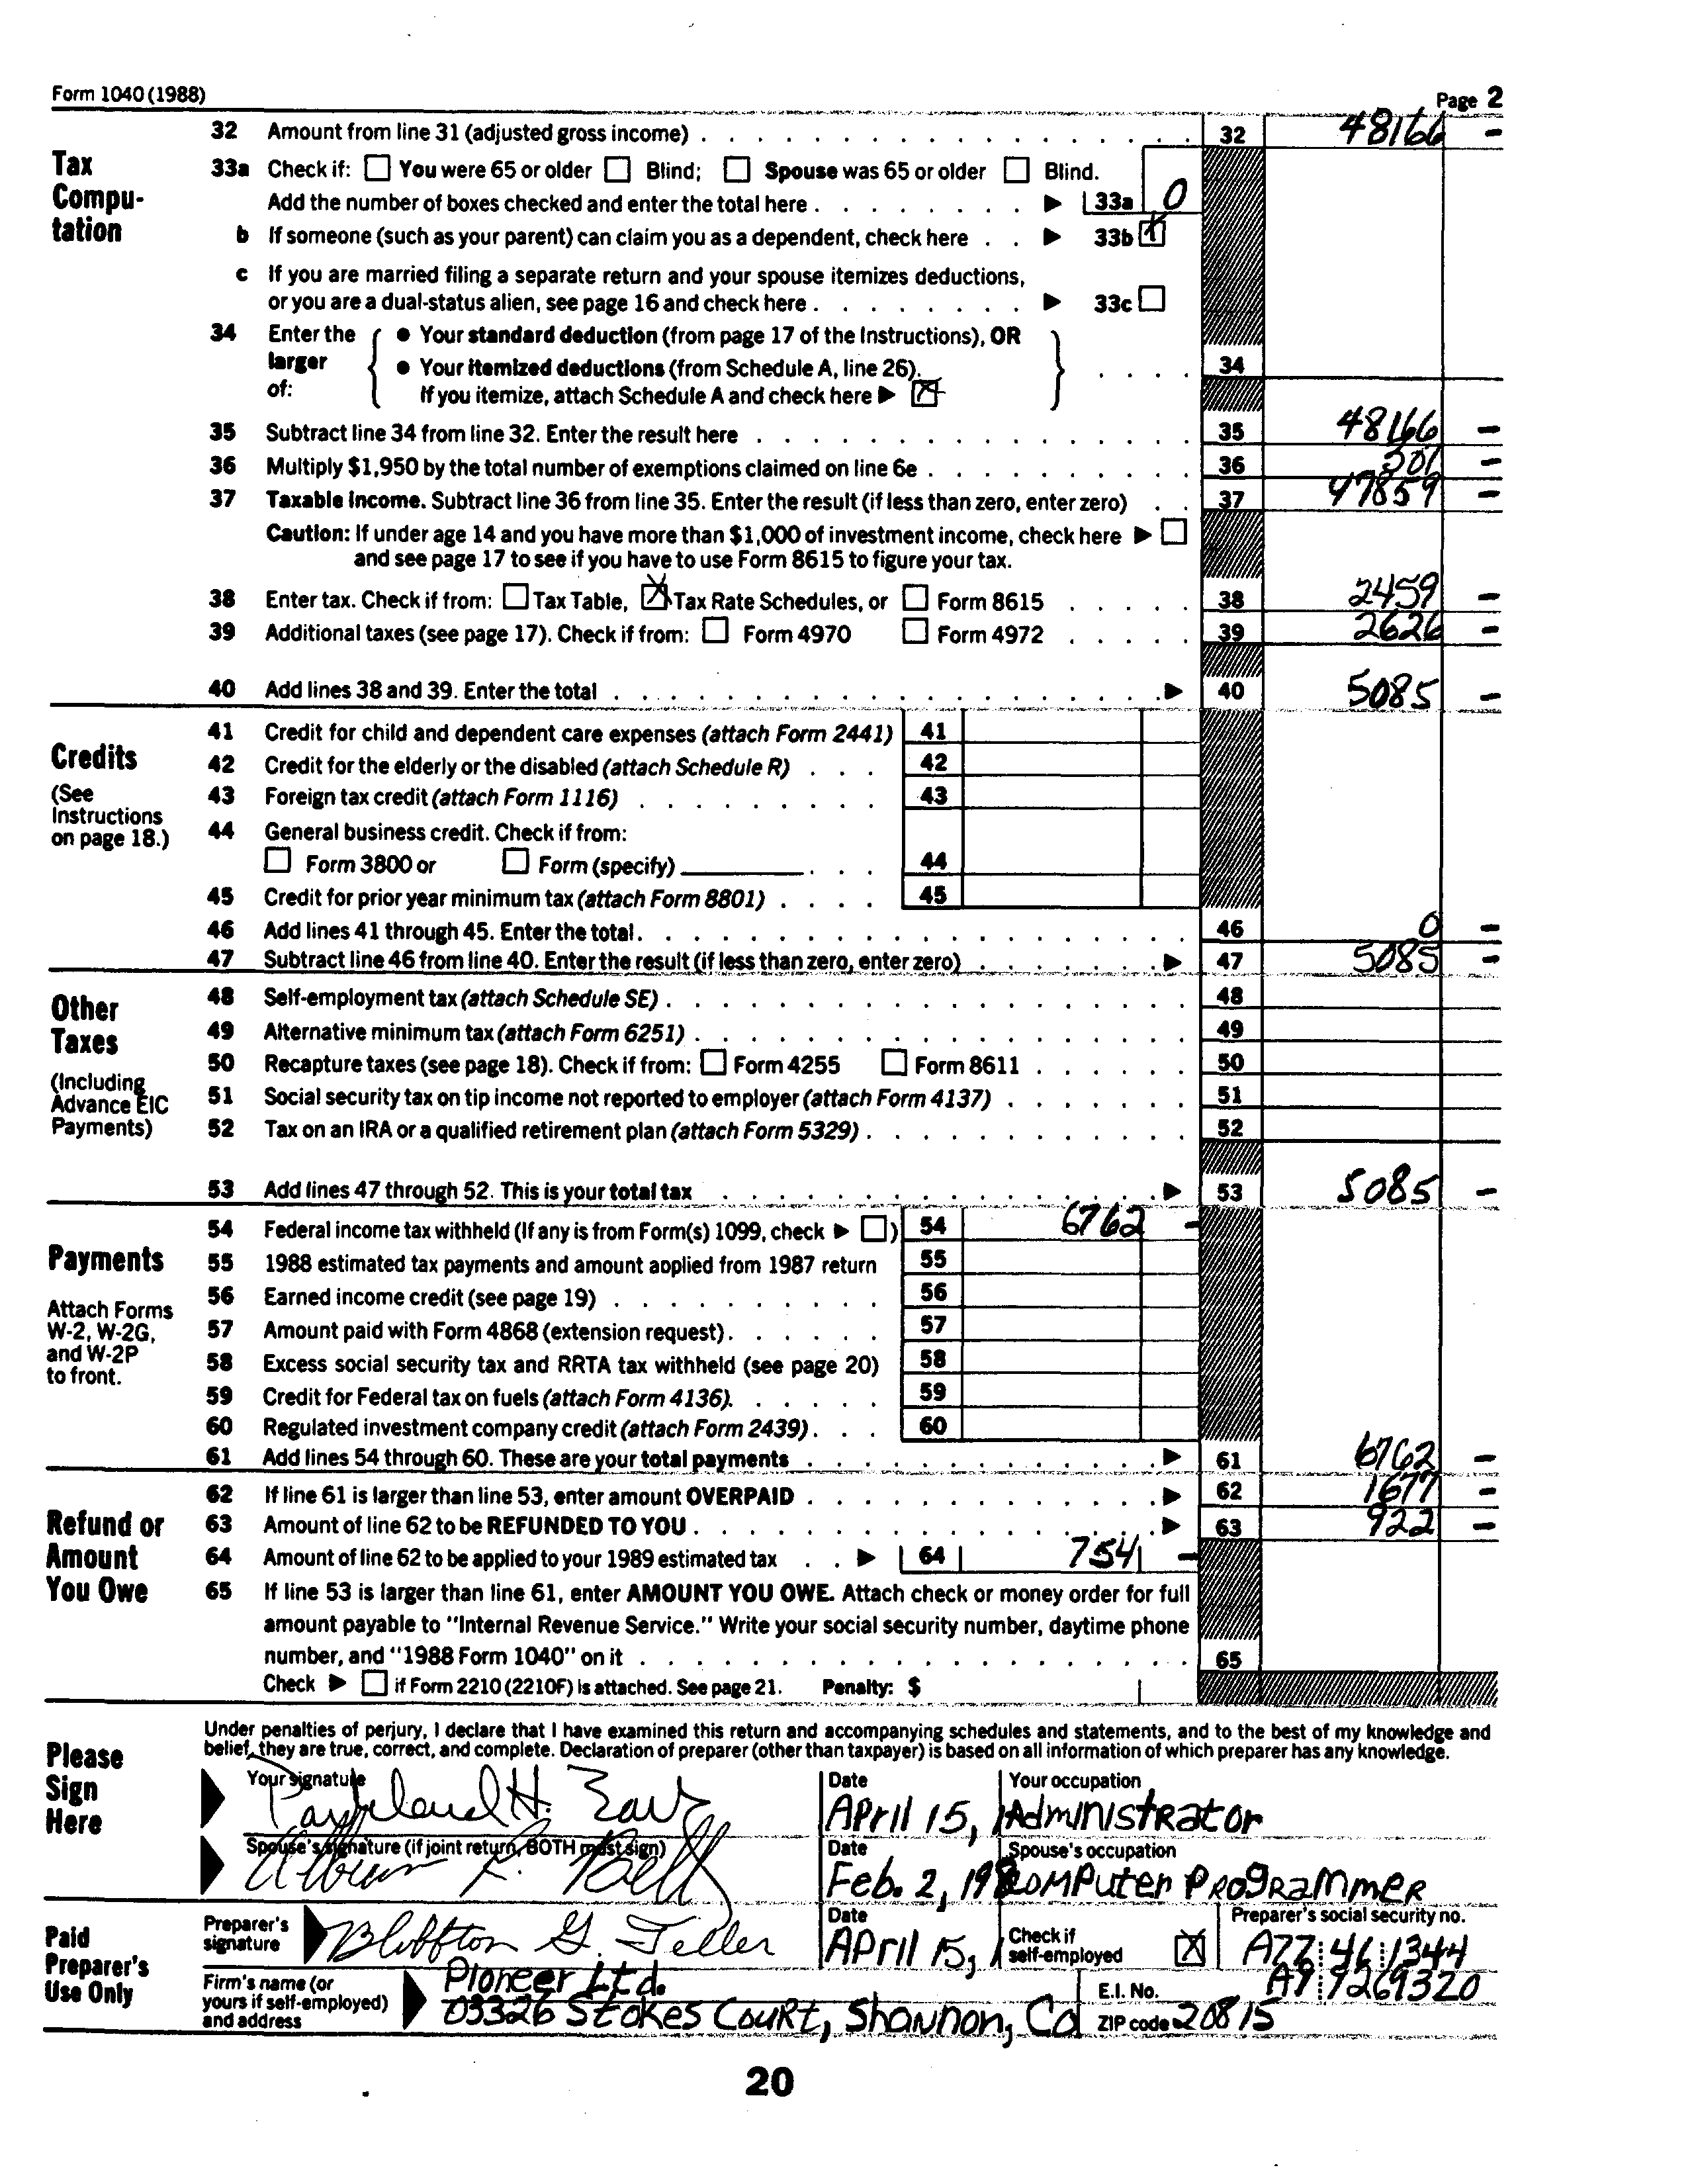 Form 1040 (1988) Page 2
Tax Compu-tation
32 Amount from line 31 (adjusted gross income) 32 48166 –
33a Check if: You were 65 or older Blind; Spouse was 65 or older Blind.
Add the number of boxes checked and enter the total here 33a 0
b If someone (such as your parent) can claim you as a dependent, check here 33b X
c If you are married filing a separate return and your spouse itemizes deductions,
or you are a dual-status alien, see page 16 and check here 33c
34 Enter the larger of: • Your standard deduction (from page 17 of the Instructions), OR
• Your itemized deductions (from Schedule A, line 26). 34
If you itemize, attach Schedule A and check here X
35 Subtract line 34 from line 32. Enter the result here 35 48166 –
36 Multiply $1,950 by the total number of exemptions claimed on line 6e 36 –
37 Taxable Income. Subtract line 36 from line 35. Enter the result (if less than zero, enter zero) 37 47859 –
Caution: If under age 14 and you have more than $1,000 of investment income, check here
and see page 17 to see if you have to use Form 8615 to figure your tax.
38 Enter tax. Check if from: Tax Table, X Tax Rate Schedules, or Form 8615 38 2459 –
39 Additional taxes (see page 17). Check if from: Form 4970 Form 4972 39 2626 –
40 Add lines 38 and 39. Enter the total 40 5085 –
Credits
(See Instructions on page 18.)
41 Credit for child and dependent care expenses (attach Form 2441) 41
42 Credit for the elderly or the disabled (attach Schedule R) 42
43 Foreign tax credit (attach Form 1116) 43
44 General business credit. Check if from:
Form 3800 or Form (specify) 44
45 Credit for prior year minimum tax (attach Form 8801) 45
46 Add lines 41 through 45. Enter the total. 46 0 –
47 Subtract line 46 from line 40. Enter the result (if less than zero, enter zero) 47 5085 –
Other Taxes
(Including Advance EIC Payments)
48 Self-employment tax (attach Schedule SE) 48
49 Alternative minimum tax (attach Form 6251) 49
50 Recapture taxes (see page 18). Check if from: Form 4255 Form 8611 50
51 Social security tax on tip income not reported to employer (attach Form 4137) 51
52 Tax on an IRA or a qualified retirement plan (attach Form 5329) 52
53 Add lines 47 through 52. This is your total tax 53 5085 –
Payments
Attach Forms W-2, W-2G, and W-2P to front.
54 Federal income tax withheld (If any is from Form(s) 1099, check ) 54 6762 –
55 1988 estimated tax payments and amount applied from 1987 return 55
56 Earned income credit (see page 19) 56
57 Amount paid with Form 4868 (extension request) 57
58 Excess social security tax and RRTA tax withheld (see page 20) 58
59 Credit for Federal tax on fuels (attach Form 4136) 59
60 Regulated investment company credit (attach Form 2439) 60
61 Add lines 54 through 60. These are your total payments 61 6762 –
Refund or Amount You Owe
62 If line 61 is larger than line 53, enter amount OVERPAID 62 1677 –
63 Amount of line 62 to be REFUNDED TO YOU 63 922 –
64 Amount of line 62 to be applied to your 1989 estimated tax 64 754 –
65 If line 53 is larger than line 61, enter AMOUNT YOU OWE. Attach check or money order for full
amount payable to "Internal Revenue Service." Write your social security number, daytime phone
number, and "1988 Form 1040" on it 65
Check if Form 2210 (2210F) is attached. See page 21. Penalty: $
Please Sign Here
Under penalties of perjury, I declare that I have examined this return and accompanying schedules and statements, and to the best of my knowledge and
belief, they are true, correct, and complete. Declaration of preparer (other than taxpayer) is based on all information of which preparer has any knowledge.
Your signature Date Your occupation
H. April 15, Administrator
Spouse's signature (if joint return, BOTH must sign) Date Spouse's occupation
Feb. 2, Computer Programmer
Paid Preparer's Use Only
Preparer's signature Date Check if self-employed X Preparer's social security no.
Bluffton G. Teller April 15, A77 46 1344
Firm's name (or yours if self-employed) and address E.I. No. ZIP code
Pioneer Ltd. A9 9269320
03326 Stokes Court, Shannon, Ca 20815
20